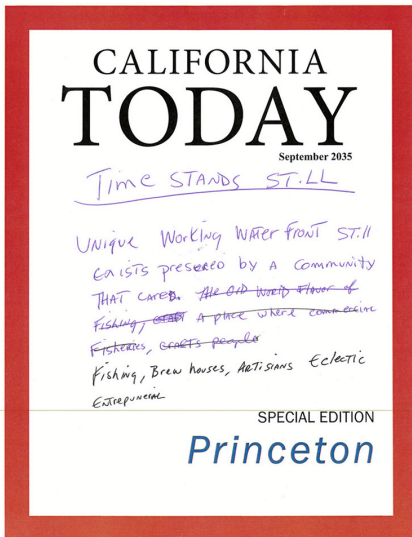 CALIFORNIA
TODAY
September 2035
Time STANDS STILL
UNIQUE Working Water front STill
Exists presereed by A Community
THAT CAReD. The OLD World Flavor of
Fishing, A place where commercial
Fisheries, CRAFTS people
Fishing, Brew houses, ARTISIANS Eclectic
ENTREPUNERIAL
SPECIAL EDITION
Princeton